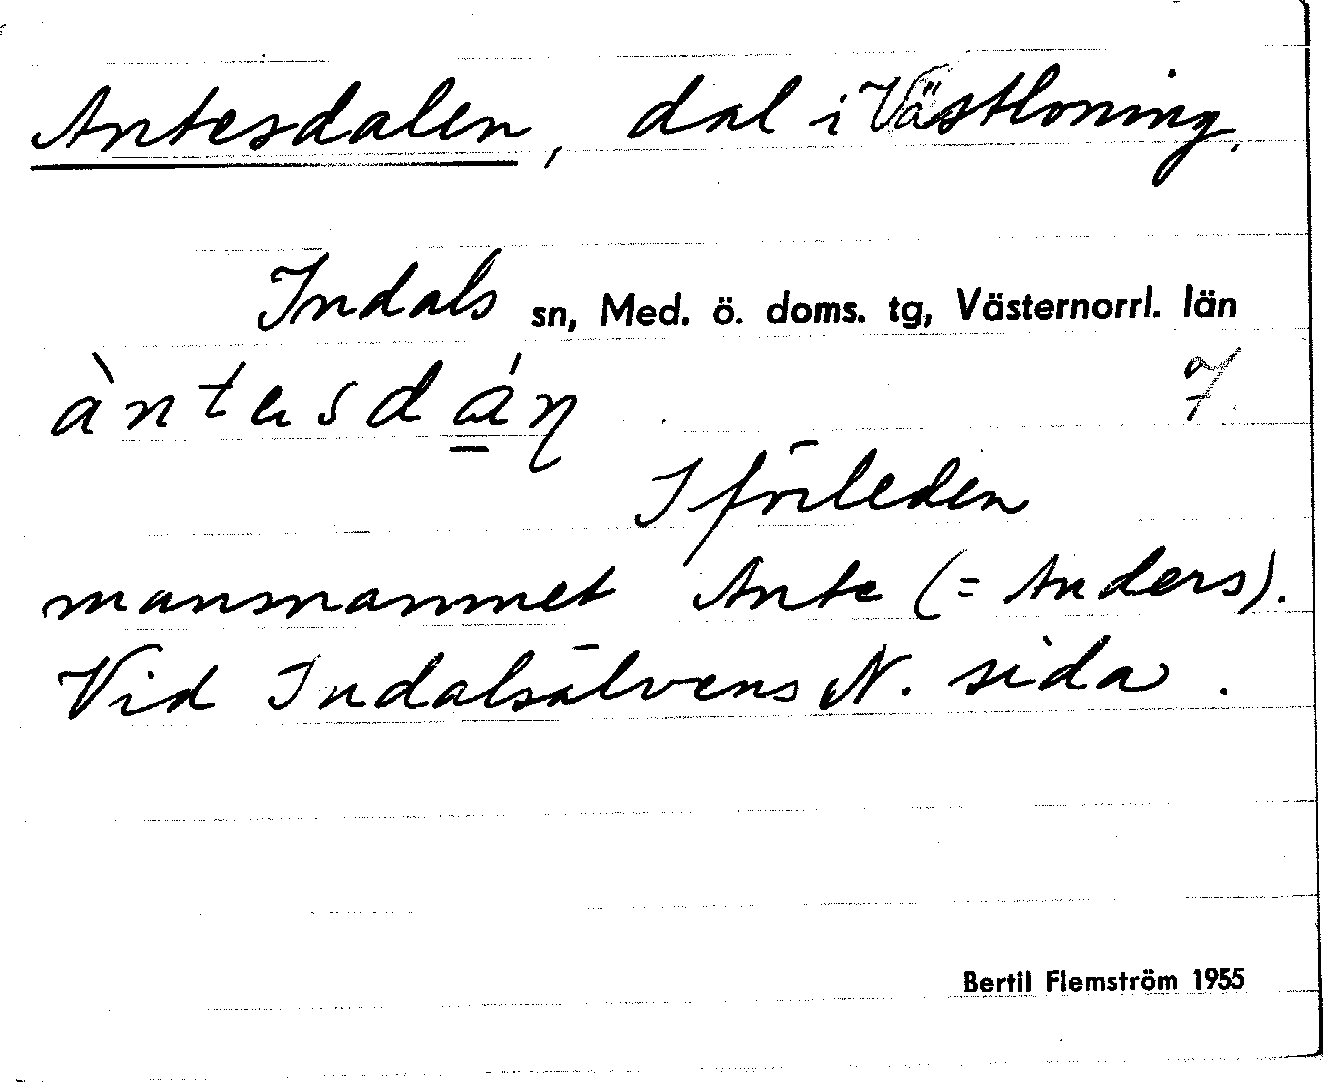 Antesdalen, dal i Västloning.
Indals sn, Med. ö. doms. tg, Västernorrl. län
7
I förleden
mansnamnet Ante (= Anders).
Vid Indalsälvens N. sida.
Bertil Flemström 1955